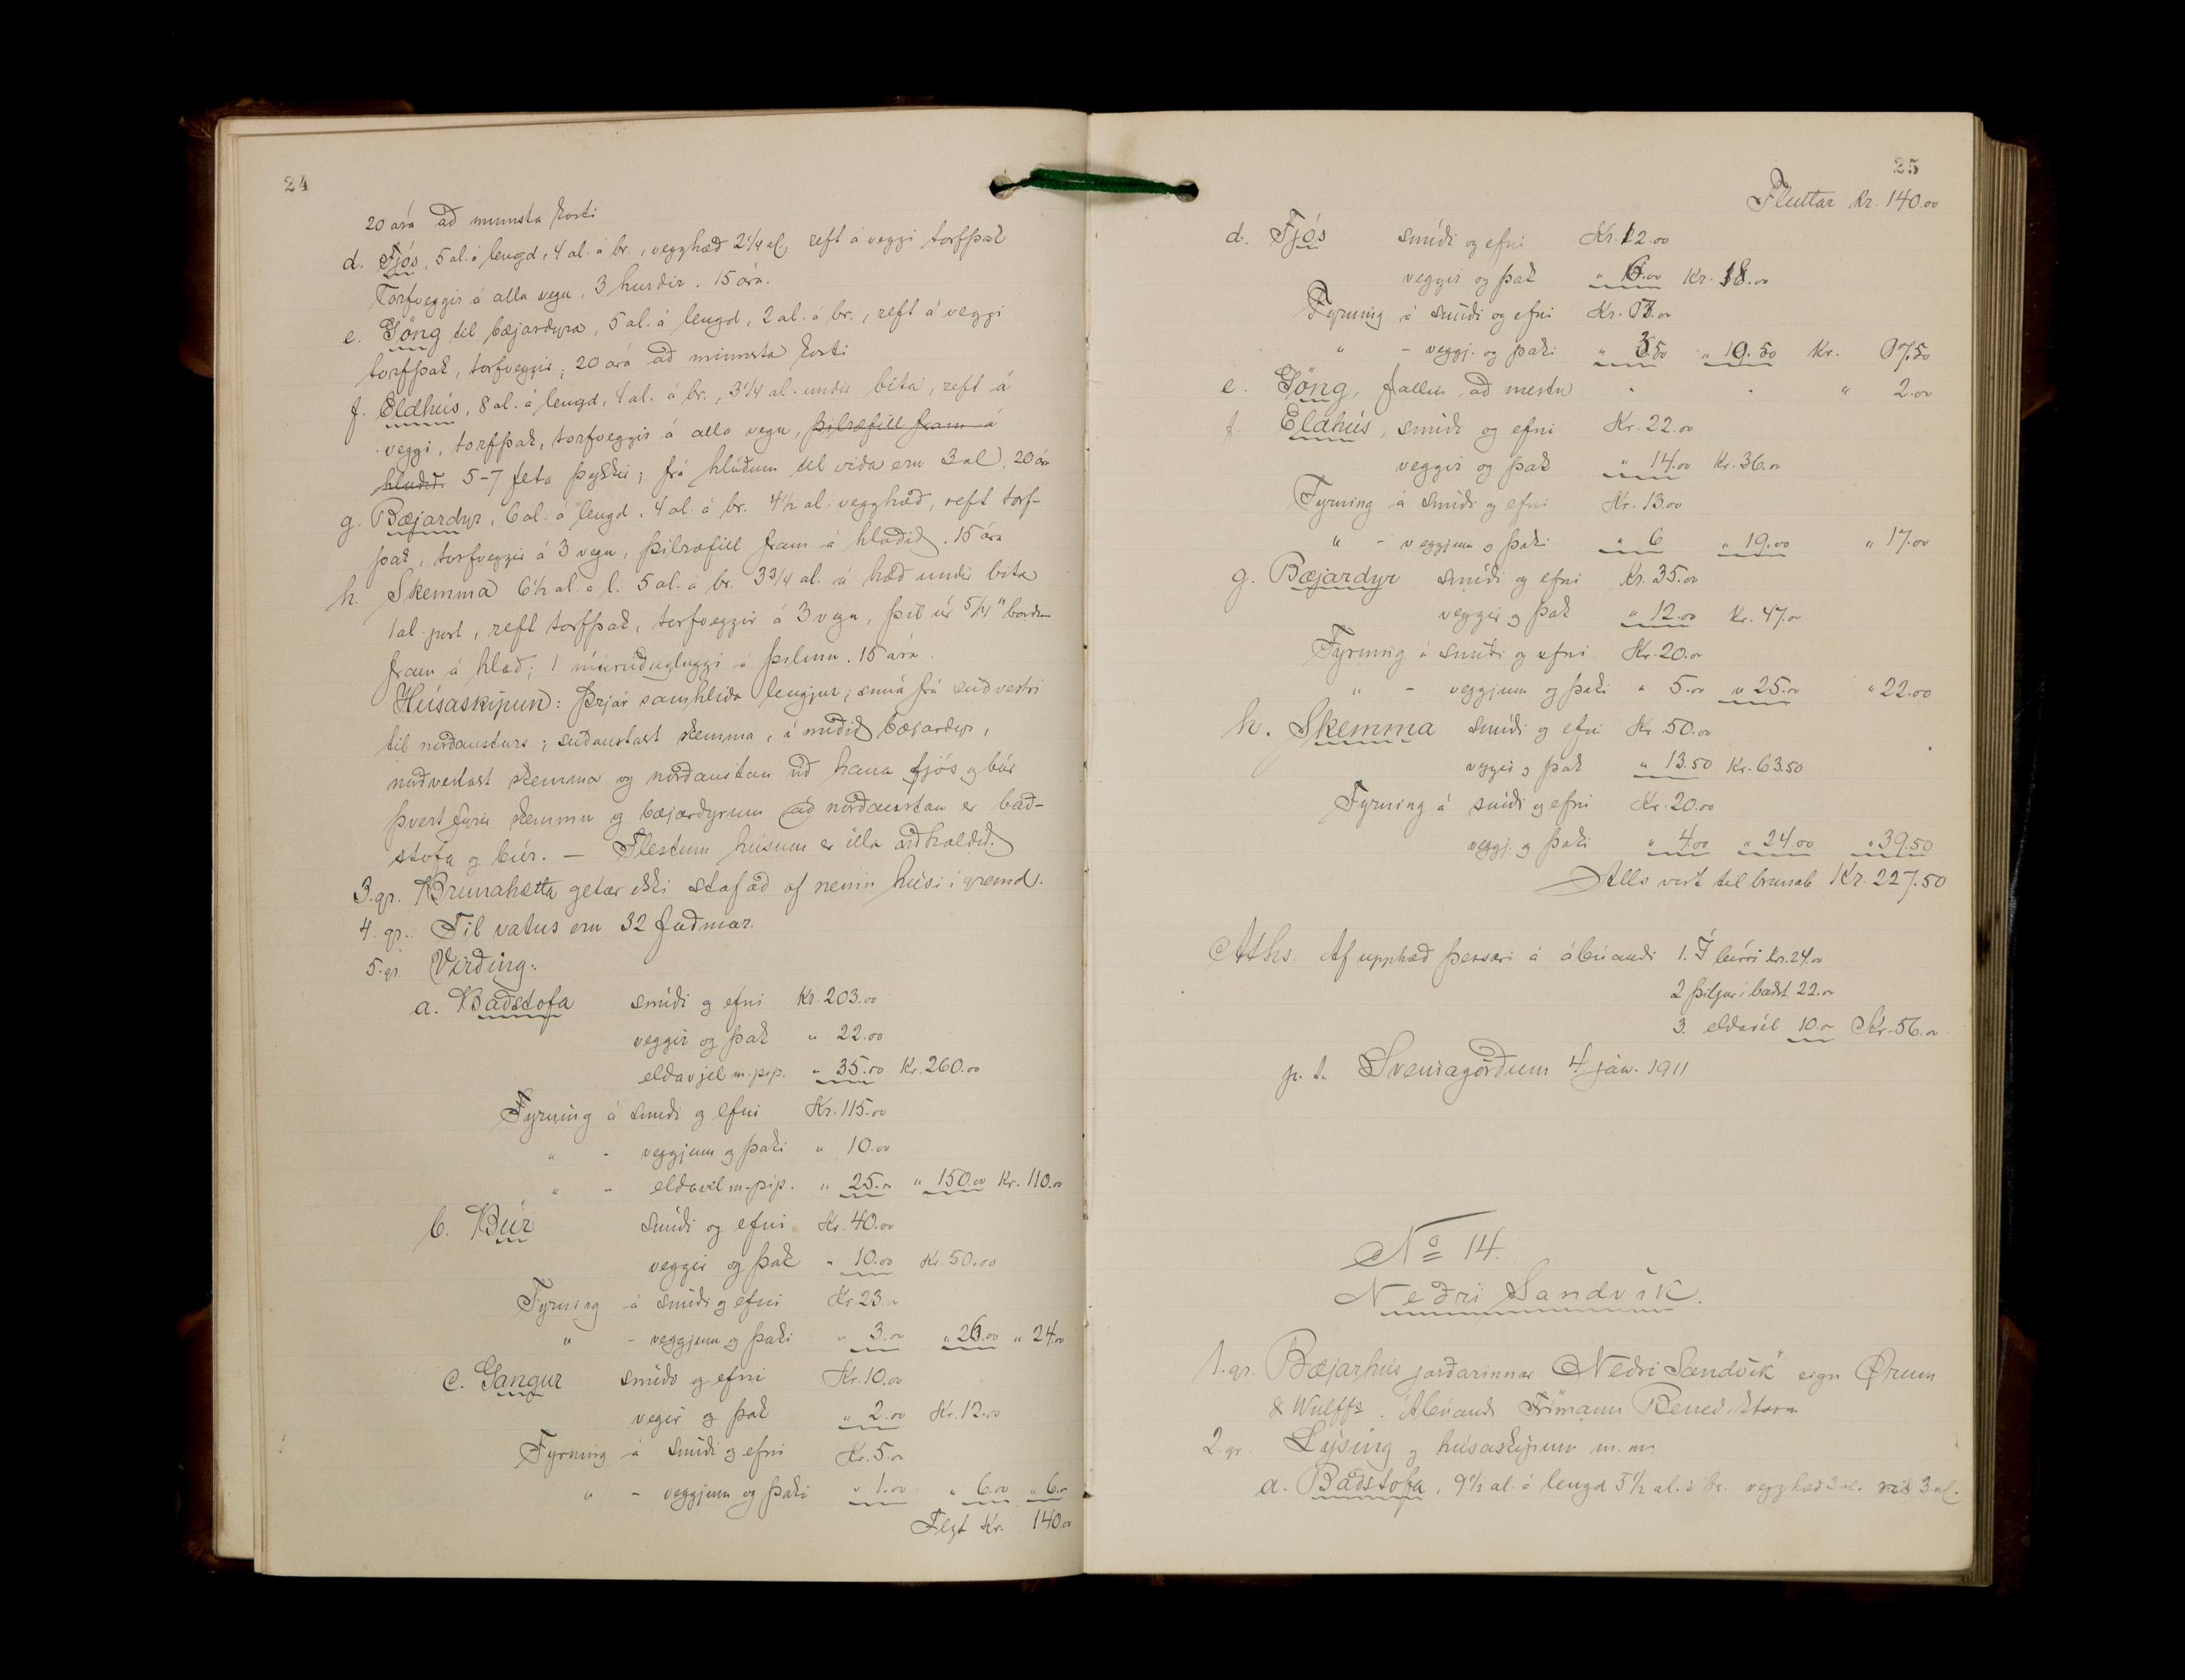 24
20 ára að minnsta kosti
d. Fjós, 5 al. á lengd, 4 al. á br., vegghæð 2 1/4 al, reft á veggi torfþak
Torfveggir á alla vegu, 3 hurðir. 15 ára.
e. Göng til bæjardyra, 5 al. á lengd, 2 al. á br., reft á veggi
torfþak, torfveggir; 20 ára að minnsta kosti
f. Eldhús, 8 al. á lengd, 4 al. á br., 3 1/4 al. undir bita, reft á
veggi, torfþak, torfveggir á alla vegu, þilræfill fram á
hlaðið. 5-7 feta þykkir; frá hlóðum til viða eru 3 al. 20 ára
g. Bæjardyr, 6 al. á lengd. 4 al. á br. 4 1/2 al. vegghæð, reft torf-
þak, torfveggir á 3 vegu, þilræfill fram á hlaðið. 15 ára
h. Skemma 6 1/2 al. á l. 5 al. á br. 3 3/4 al. á hæð undir bita
1 al. port, reft torfþak, torfveggir á 3 vegu, þil úr 5/4" borðum
fram á hlað; 1 fram á þilinu. 15 ára.
Húsaskipun: Þrjár samhliða lengjur; snúa frá suðvestri
til norðausturs; suðaustast skemma, í miðið bæjardyr,
norðvestast skemma og norðaustan við hana fjós og búr
þvert fyrir skemmu og bæjardyrum að norðaustan er bað-
stofa og búr. — Flestum húsum er illa viðhaldið.
3. gr. Brunahætta getur ekki stafað af neinu húsi í grennd.
4. gr. Til vatns eru 32 faðmar.
5. gr. Virðing:
a. Baðstofa smíði og efni Kr. 203.00
veggir og þak " 22.00
eldavjel m. píp. " 35.00 Kr. 260.00
Fyrning á smíði og efni Kr. 115.00
" - veggjum og þaki " 10.00
" - eldavél m. píp. " 25.00 " 150.00 Kr. 110.00
b. Búr smíði og efni Kr. 40.00
veggir og þak " 10.00 Kr. 50.00
Fyrning á smíði og efni Kr. 23.00
" - veggjum og þaki " 3.00 " 26.00 " 24.00
c. Gangur smíði og efni Kr. 10.00
vegir og þak " 2.00 Kr. 12.00
Fyrning á smíði og efni Kr. 5.00
" - veggjum og þaki " 1.00 " 6.00 " 6.00
Flyt Kr. 140.00
25
Fluttar Kr. 140.00
d. Fjós smíði og efni Kr. 12.00
veggir og þak " 6.00 Kr. 18.00
Fyrning á smíði og efni Kr. 7.00
" - veggj. og þaki " 3.50 " 10.50 Kr. 7.50
e. Göng, fallin að mestu " 2.00
f. Eldhús, smíði og efni Kr. 22.00
veggir og þak " 14.00 Kr. 36.00
Fyrning á smíði og efni Kr. 13.00
" - veggjum og þaki " 6 " 19.00 " 17.00
g. Bæjardyr smíði og efni Kr. 35.00
veggir og þak " 12.00 Kr. 47.00
Fyrning á smíði og efni Kr. 20.00
" - veggjum og þaki " 5.00 " 25.00 " 22.00
h. Skemma smíði og efni Kr 50.00
veggir og þak " 13.50 Kr. 63.50
Fyrning á smíði og efni Kr. 20.00
veggj. og þaki " 4.00 " 24.00 " 39.50
Alls virt til brunab Kr. 227.50
Aths. Af upphæð þessari á ábúandi 1. Í búri Kr. 24.00
2 þiljur í baðst 22.00
3. eldavél 10.00 Kr. 56.00
p. t. Sveinagörðum 4. jan. 1911
No 14.
Neðri Sandvík.
1. gr. Bæjarhús jarðarinnar „Neðri Sandvík" eign Ørum
& Wulffs. Ábúandi Frímann Benediktsson
2. gr. Lýsing og húsaskipun m. m.
a. Baðstofa, 9 1/2 al. á lengd 3 1/2 al. á br. vegghæð 3 al. ris 3 al.